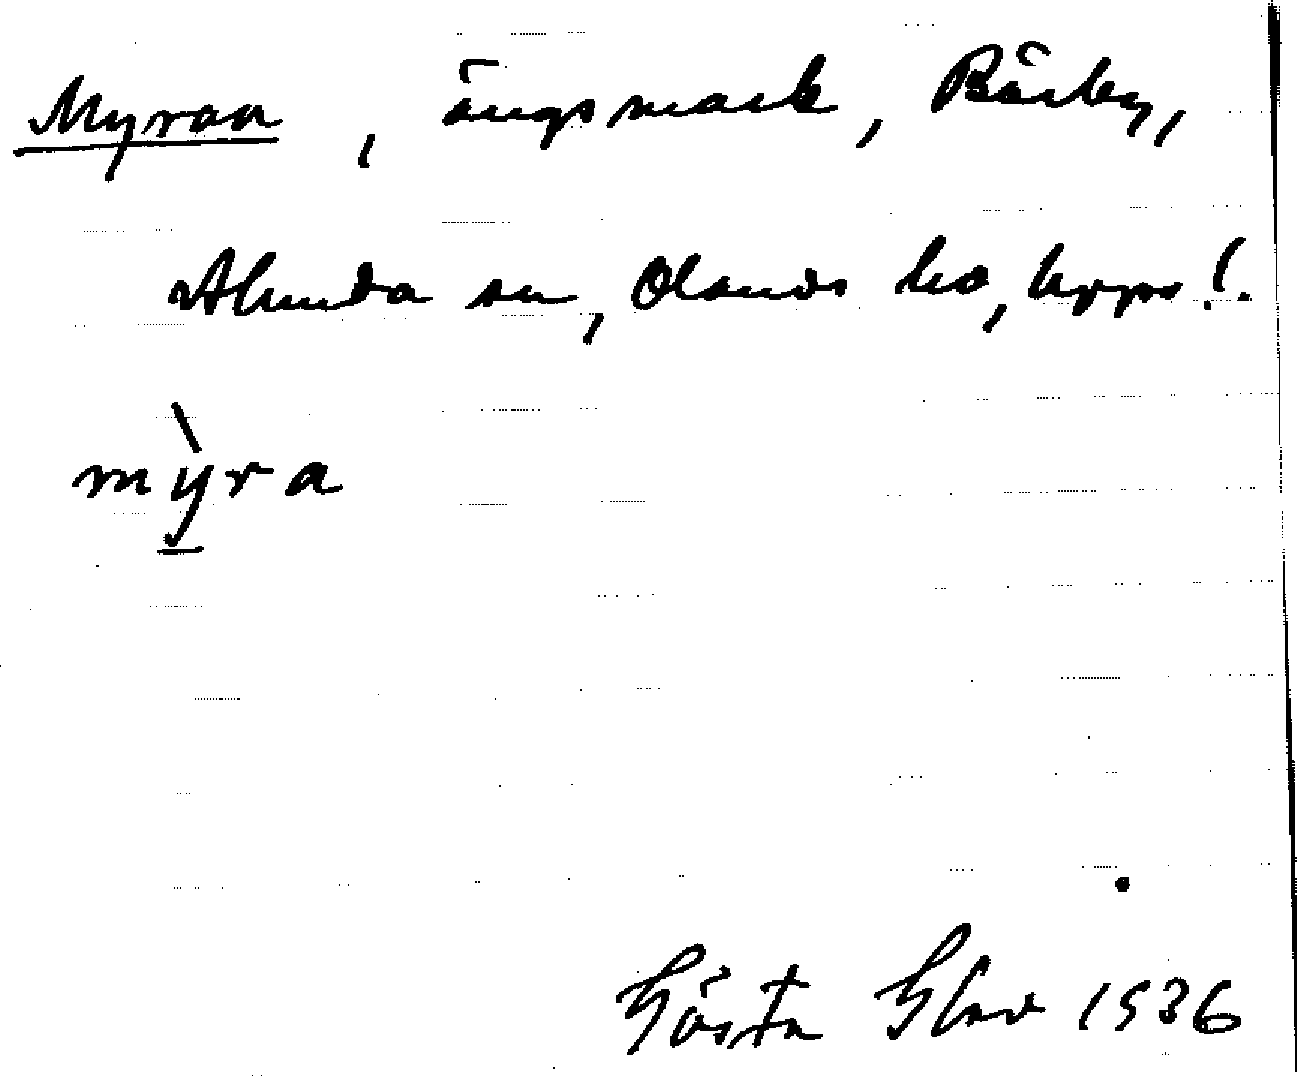 Myran, ängsmark, Bärby,
Alunda sn, Olands hd, Upps. l.
mỳra
Gösta 1936